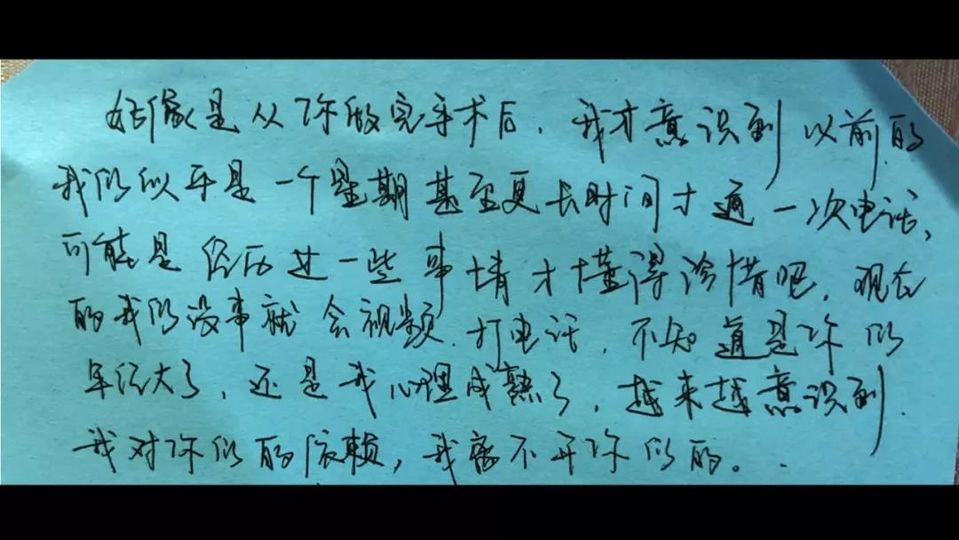 好像是从你做完手术后，我才意识到以前的
我们似乎是一个星期甚至更长时间才通一次电话，
可能是经历过一些事情才懂得珍惜吧，现在
的我们没事就会视频，打电话，不知道是你们
年纪大了，还是我心理成熟了，越来越意识到
我对你们的依赖，我离不开你们的。